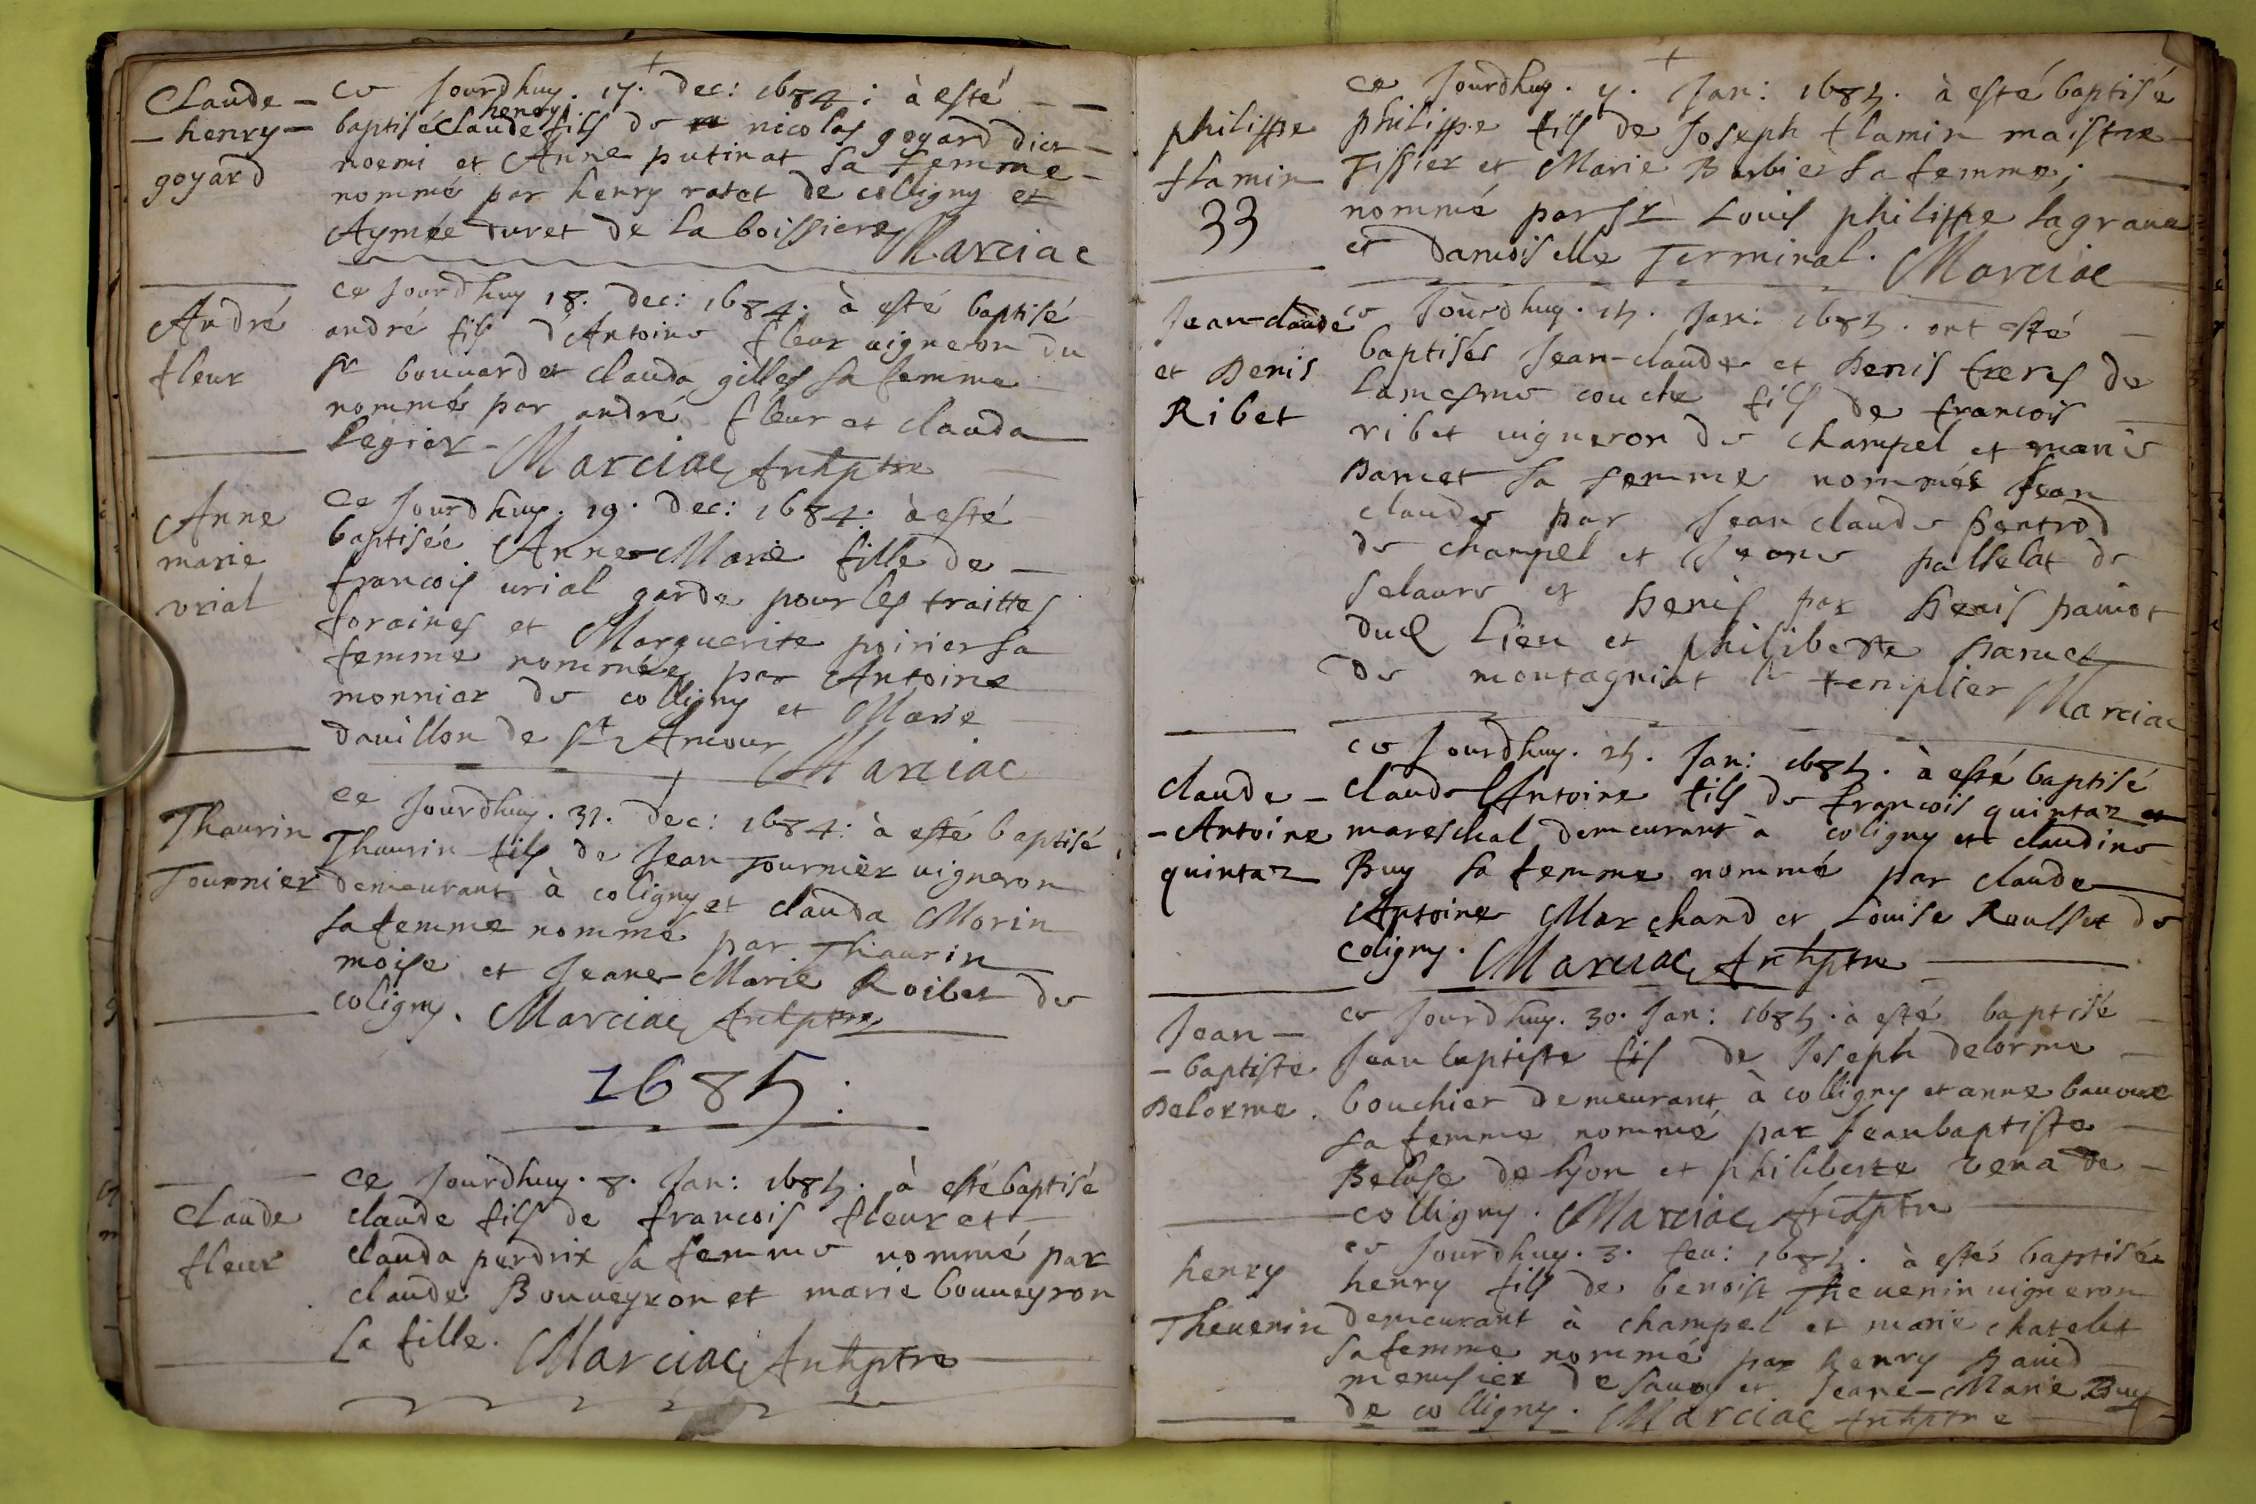 Claude –
– henry –
goyard
ce Jourdhuy. 17. dec: 1684: à esté – –
baptisé Claude henry fils de nicolas goyard dict –
noemi et Anne putinat sa femme –
nommé par henry ratet de colligny et
Aymée duret de la boissiere Marciac
André
fleur
ce Jourdhuy 18. dec: 1684. à esté baptisé
andré fils d'Antoine fleur vigneron du
sr bouuard et clauda gilles sa femme
nommé par andré fleur et clauda
legier – Marciac Archptre
Anne
marie
vrial
ce Jourdhuy. 19. dec: 1684: à esté
baptisée Anne Marie fille de –
francois urial garde pour les traittes
foraines et Marguerite poirier sa
femme nommée par Antoine
monnier de colligny et Marie
dauillon de st Amour Marciac
Thaurin
Tournier
ce Jourdhuy. 31. dec: 1684: à esté baptisé
Thaurin fils de Jean Tournier uigneron
demeurant à coligny et clauda Morin
sa femme nommé par Thaurin
moise et Jeane Marie Roibet de
coligny. Marciac Archptre
1685:
Claude
fleur
ce Jourdhuy. 8. Jan: 1685. à esté baptisé
claude fils de francois fleur et –
clauda perdrix sa femme nommé par
claude Bouueyron et marie bouueyron
sa fille. Marciac Archptre
philippe
flamin
33
ce Jourdhuy. 9. Jan: 1685. à esté baptisé
philippe fils de Joseph flamin maistre –
Tissier et Marie Barbier sa femme; –
nommé par sr Louis philippe lagraue
et damoiselle Terminal. Marciac
Jean-claude
et Denis
Ribet
ce Jourdhuy. 15. Jan: 1685. ont esté –
baptisés Jean-claude et Denis freres de
la mesme couche fils de francois –
ribet uigneron de champel et marie
Damet sa femme nommés Jean
claude par Jean claude pentrod
de champel et palselat de
selaure et Denis par Denis pauiot
dud lieu et philiberte Damet
de montagniat le templier Marciac
Claude –
– Antoine
quintaz
ce Jourdhuy. 25. Jan: 1685. à esté baptisé
claude Antoine fils de francois quintaz et
mareschal demeurant à coligny et claudine
Buy sa femme nommé par claude
Antoine Marchand et Louise Roulsset de
coligny. Marciac Archptre
Jean –
– baptiste
Delorme.
ce Jourdhuy. 30. Jan: 1685. à esté baptisé –
Jean baptiste fils de Joseph delorme –
bouchier demeurant à colligny et anne bauoux
sa femme nommé par Jean baptiste –
Beluse de lyon et philiberte vena de –
colligny. Marciac Archptre
henry
Theuenin
ce Jourdhuy. 3. feu: 1685. à esté baptisé
henry fils de benoist Theuenin uigneron
demeurant à champel et marie chatelet
sa femme nommé par henry Dauid –
menusier de sauoy et Jeane-Marie Buy
de colligny. Marciac Archptre –